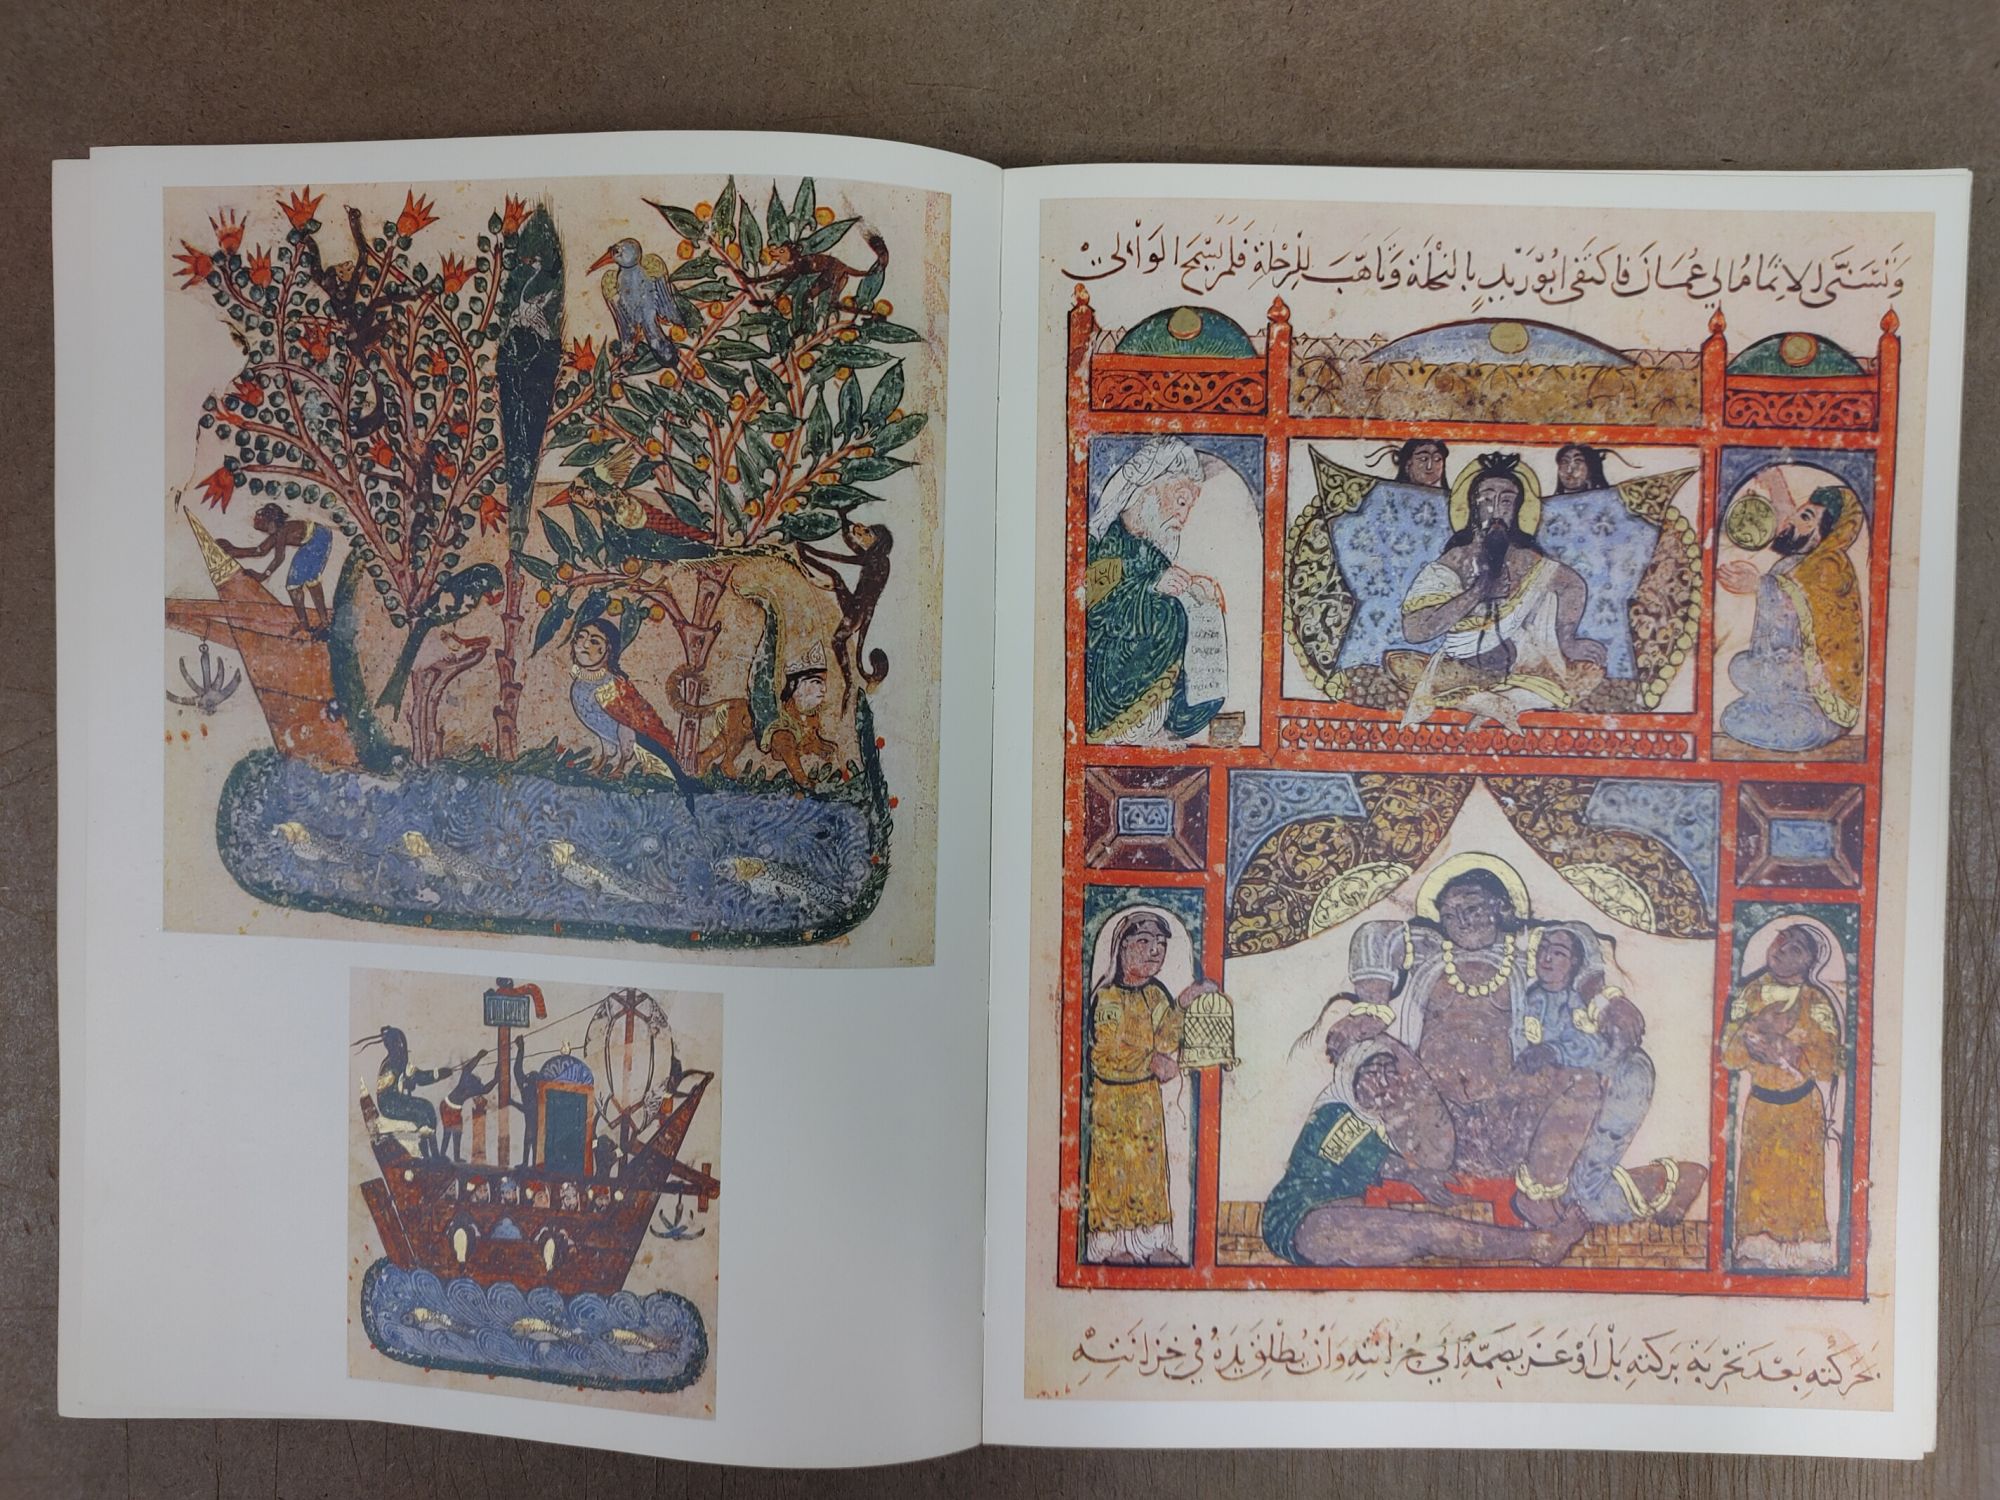 وَتَسَنَّى الاِتمَامُ الي عُمَانَ فَاكتَفَى ابُو زَيْدٍ بِالنِحْلَةِ وَتَاهَّبَ لِلرِحْلَةِ فَلَمْ يَسْمَحِ الوَالِيْ
بحَرَكَتِهِ بَعْدَ تَجْرِبَةِ بَرَكَتِهِ بَلْ اَوْعَزَ بِضَمِّهِ الَي حُزَانتِهِ وَاَنْ يُطْلِقَ يَدَهُ فِي خِزَانَتِهِ